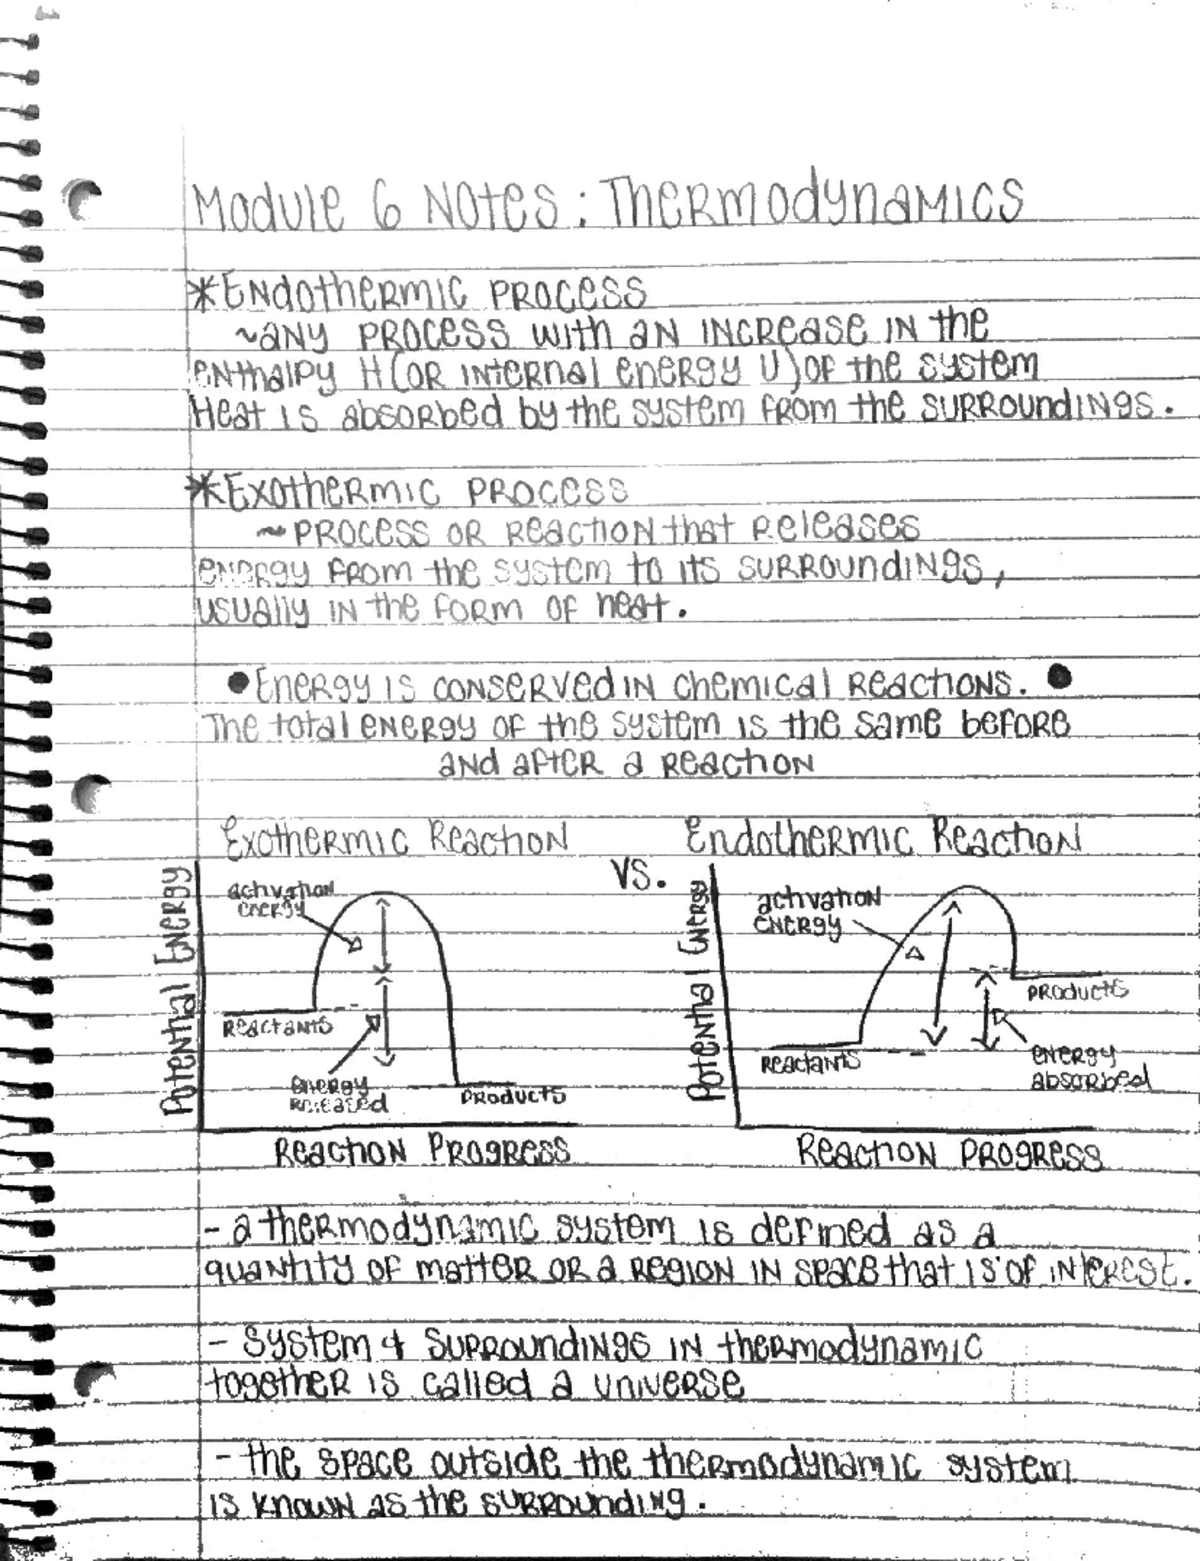 Module 6 Notes: Thermodynamics
*Endothermic Process
~any process with an increase in the
enthalpy H(or internal energy U) of the system
Heat is absorbed by the system from the surroundings.
*Exothermic Process
~process or reaction that releases
energy from the system to its surroundings,
usually in the form of heat.
•Energy is conserved in chemical reactions.•
The total energy of the system is the same before
and after a reaction
Exothermic Reaction
VS.
Endothermic Reaction
Potential Energy
activation
energy
Reactants
energy
released
Products
Reaction Progress
Potential Energy
activation
energy
Reactants
Products
energy
absorbed
Reaction Progress
- a thermodynamic system is defined as a
quantity of matter or a region in space that is of interest.
- System & surroundings in thermodynamic
together is called a universe
- the space outside the thermodynamic system
is known as the surrounding.